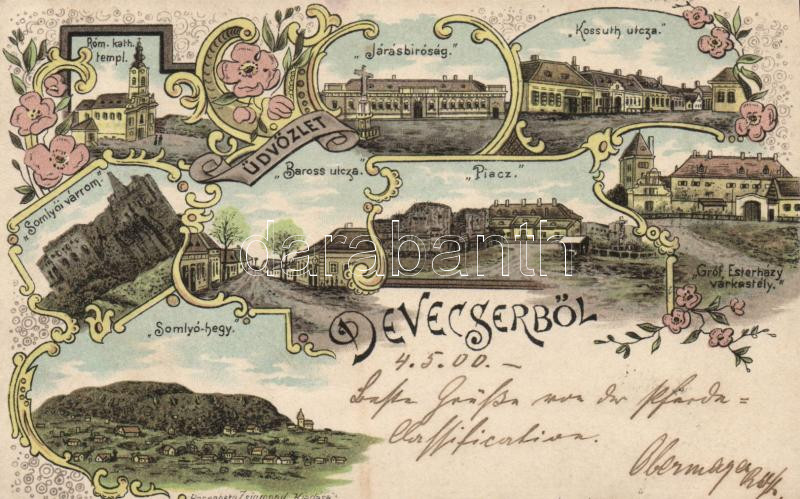 Róm. kath.
templ.
„Járásbiróság."
„Kossuth utcza."
ÜDVÖZLET
„Somlyói várrom."
„Baross utcza."
„Piacz."
„Gróf Esterházy
várkastély."
„Somlyó-hegy."
DEVECSERBŐL
darabanth
4.5.00.–
Beste Grüße von der Pferde-
Classification.
Obermayer
Zsigmond Kiadása.